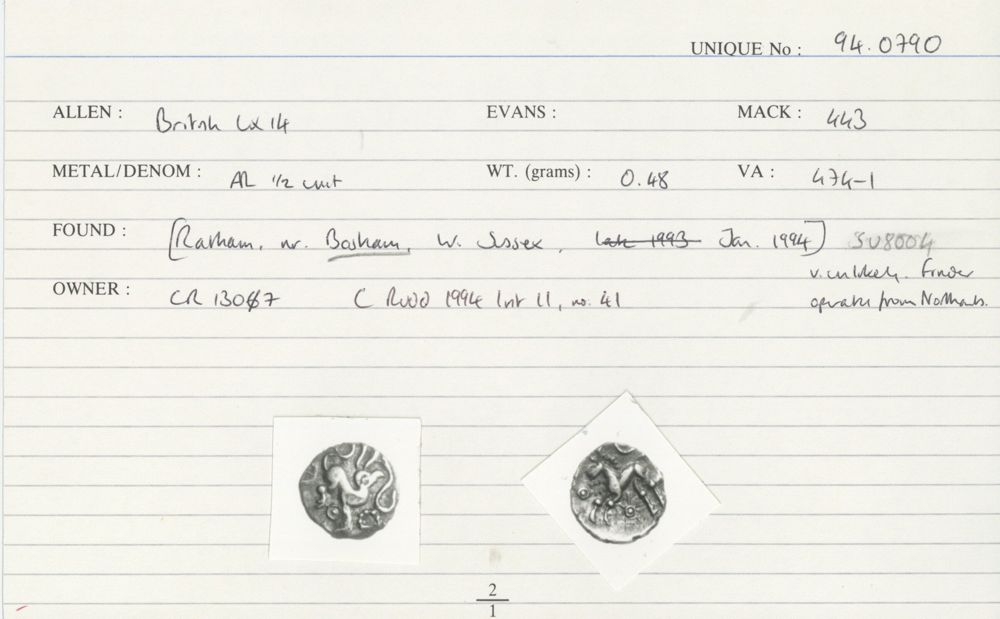 UNIQUE No : 94.0790
ALLEN : British LX 14 EVANS : MACK : 443
METAL/DENOM : AR 1/2 unit WT. (grams) : 0.48 VA : 474-1
FOUND : [Ratham, nr. Bosham, W. Sussex, late 1993 Jan. 1994] SU8004
v. unlikely. Finder
OWNER : CR 13067 C Rudd 1994 list 11, no. 41 operates from Northants.
2
1